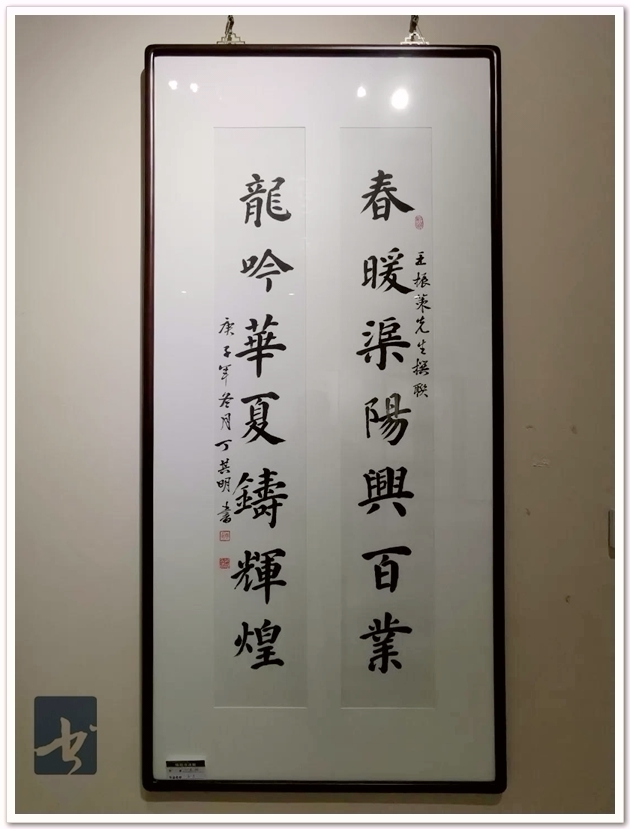 春暖渠陽興百業
王振策先生撰聯
龍吟華夏鑄輝煌
庚子年冬月丁其明書
书